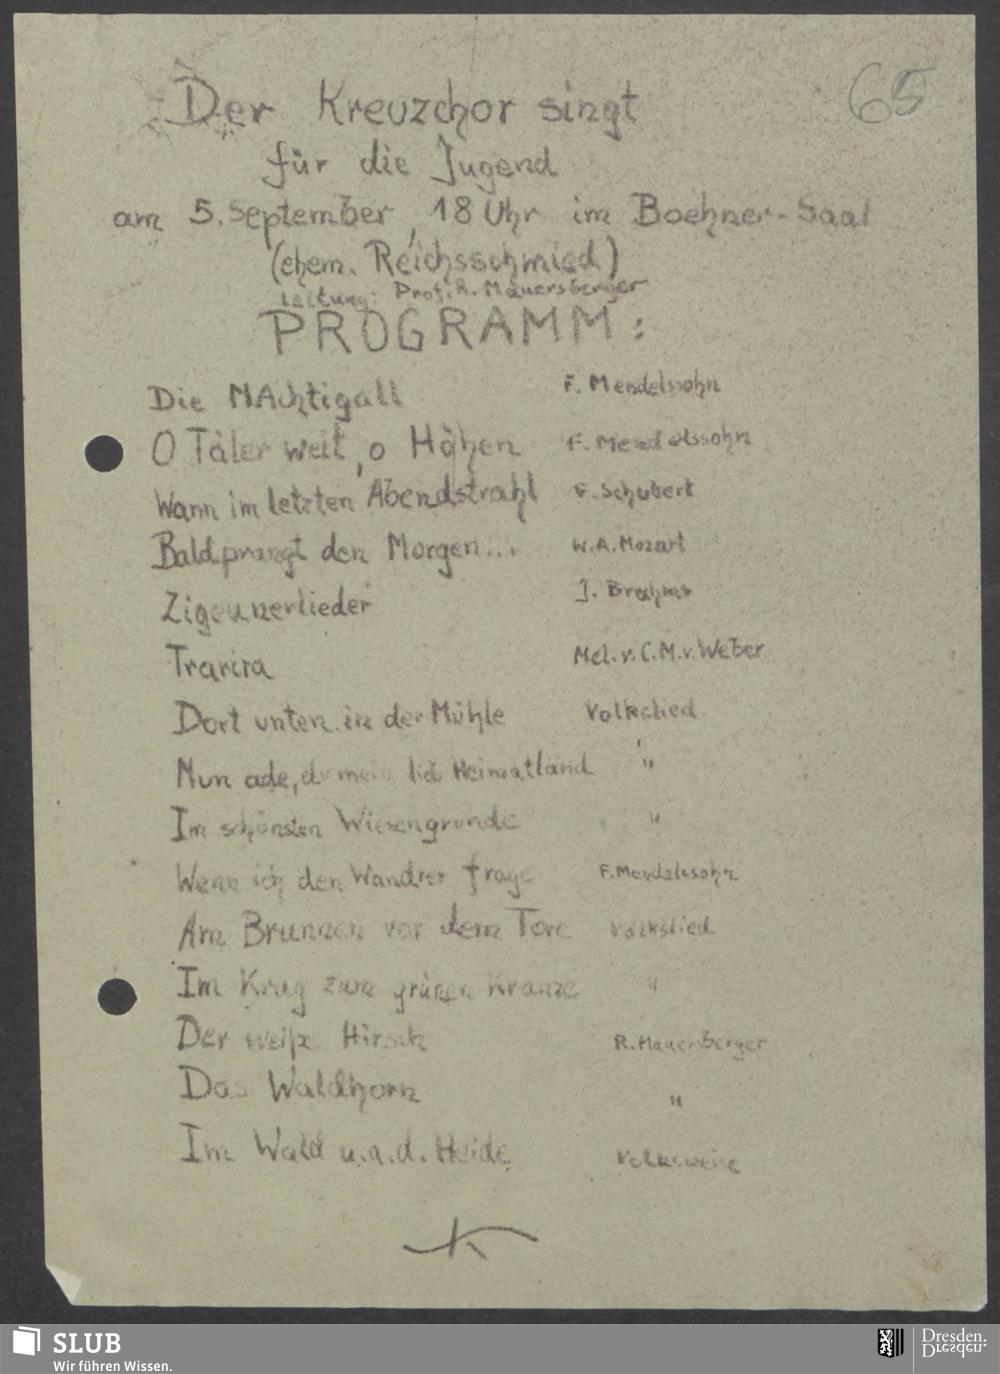 65
Der Kreuzchor singt
für die Jugend
am 5. September, 18 Uhr im Boehner-Saal
(ehem. Reichsschmied)
Leitung: Prof. R. Mauersberger
PROGRAMM:
Die NAchtigall F. Mendelssohn
O Täler weit, o Höhen F. Mendelssohn
Wann im letzten Abendstrahl F. Schubert
Bald prangt den Morgen... W.A. Mozart
Zigeunerlieder J. Brahms
Trarira Mel. v. C.M.v. Weber
Dort unten in der Mühle Volkslied
Nun ade, du mein lieb Heimatland "
Im schönsten Wiesengrunde "
Wenn ich den Wandrer frage F. Mendelssohn
Am Brunnen vor dem Tore Volkslied
Im Krug zum grünen Kranze "
Der weiße Hirsch R. Mauersberger
Das Waldhorn "
Im Wald u.a.d. Heide Volksweise
SLUB
Wir führen Wissen.
Dresden.
Dresden.